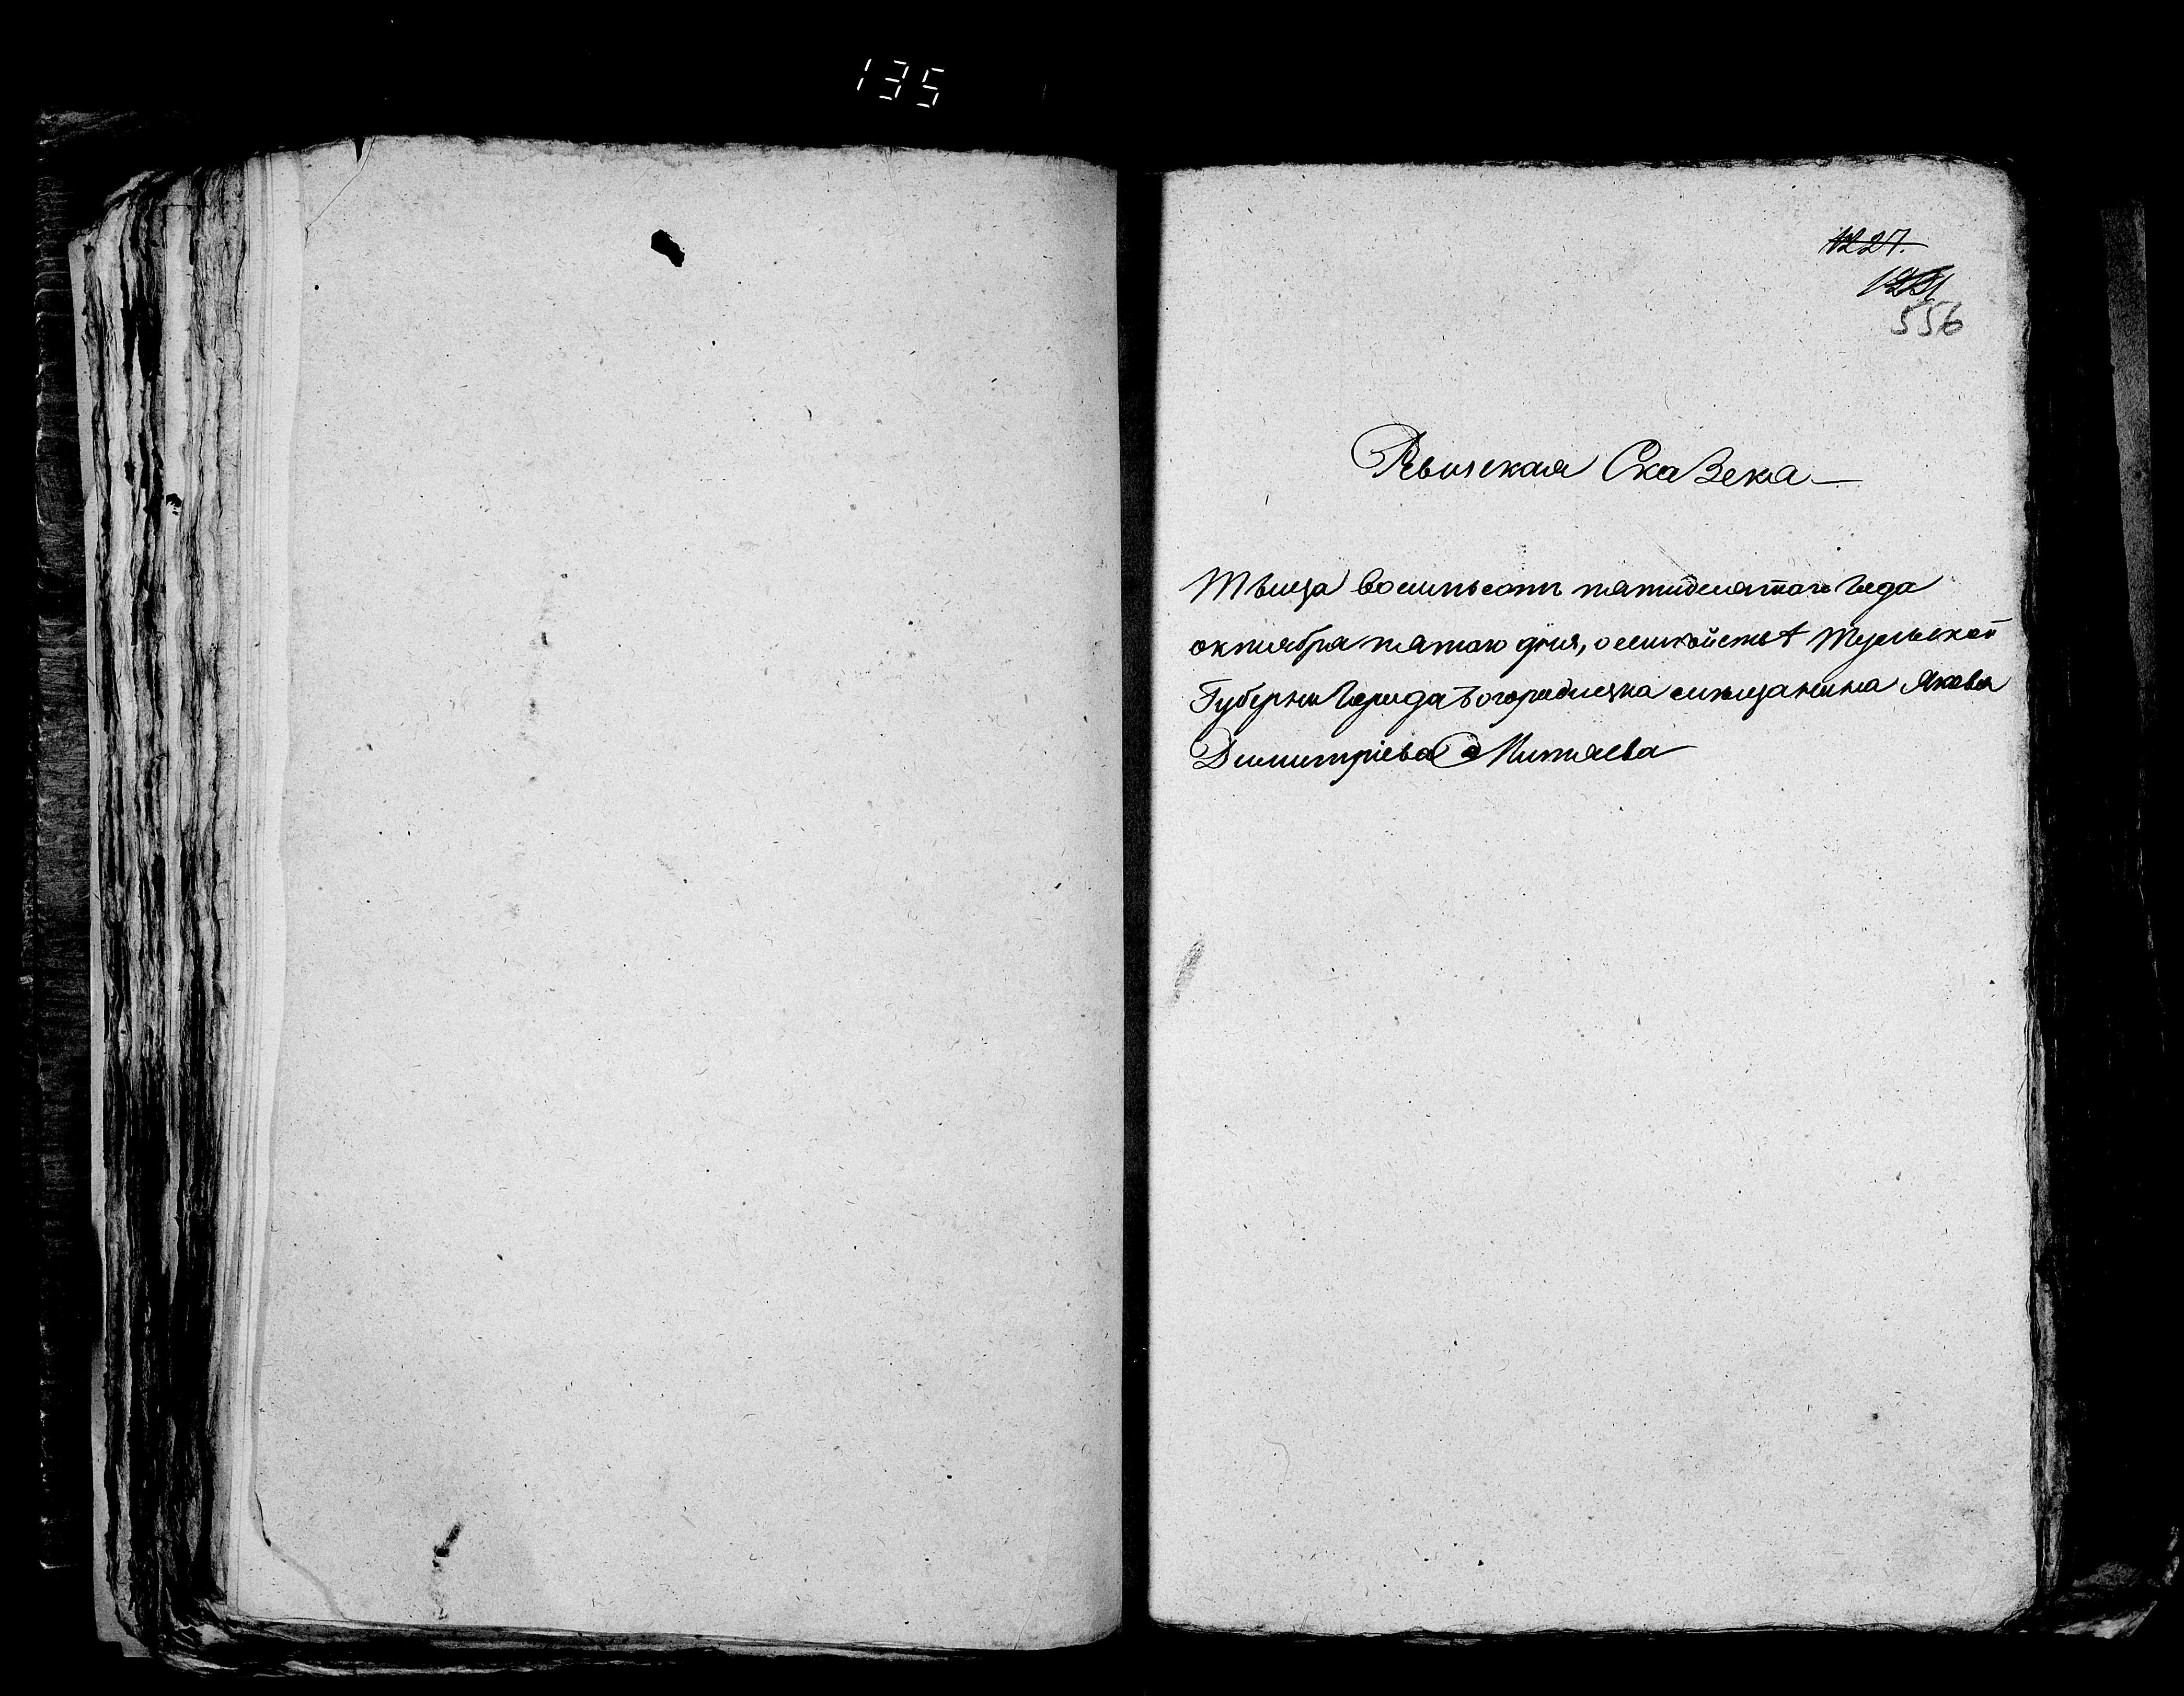 135
1227.
556
Ревизская Сказска
Тысеща восимьсотъ пятидесятаго года
октября пятаго дня, о симействе Тульской
Губерни города Богородицка мещанина Якова
Димитріева Митяева